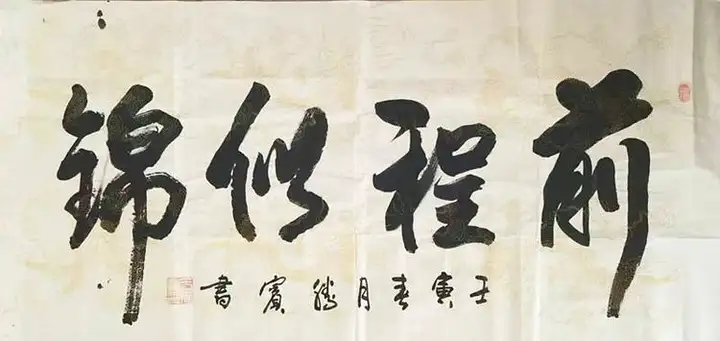 前程似錦
壬寅春月勝賓書